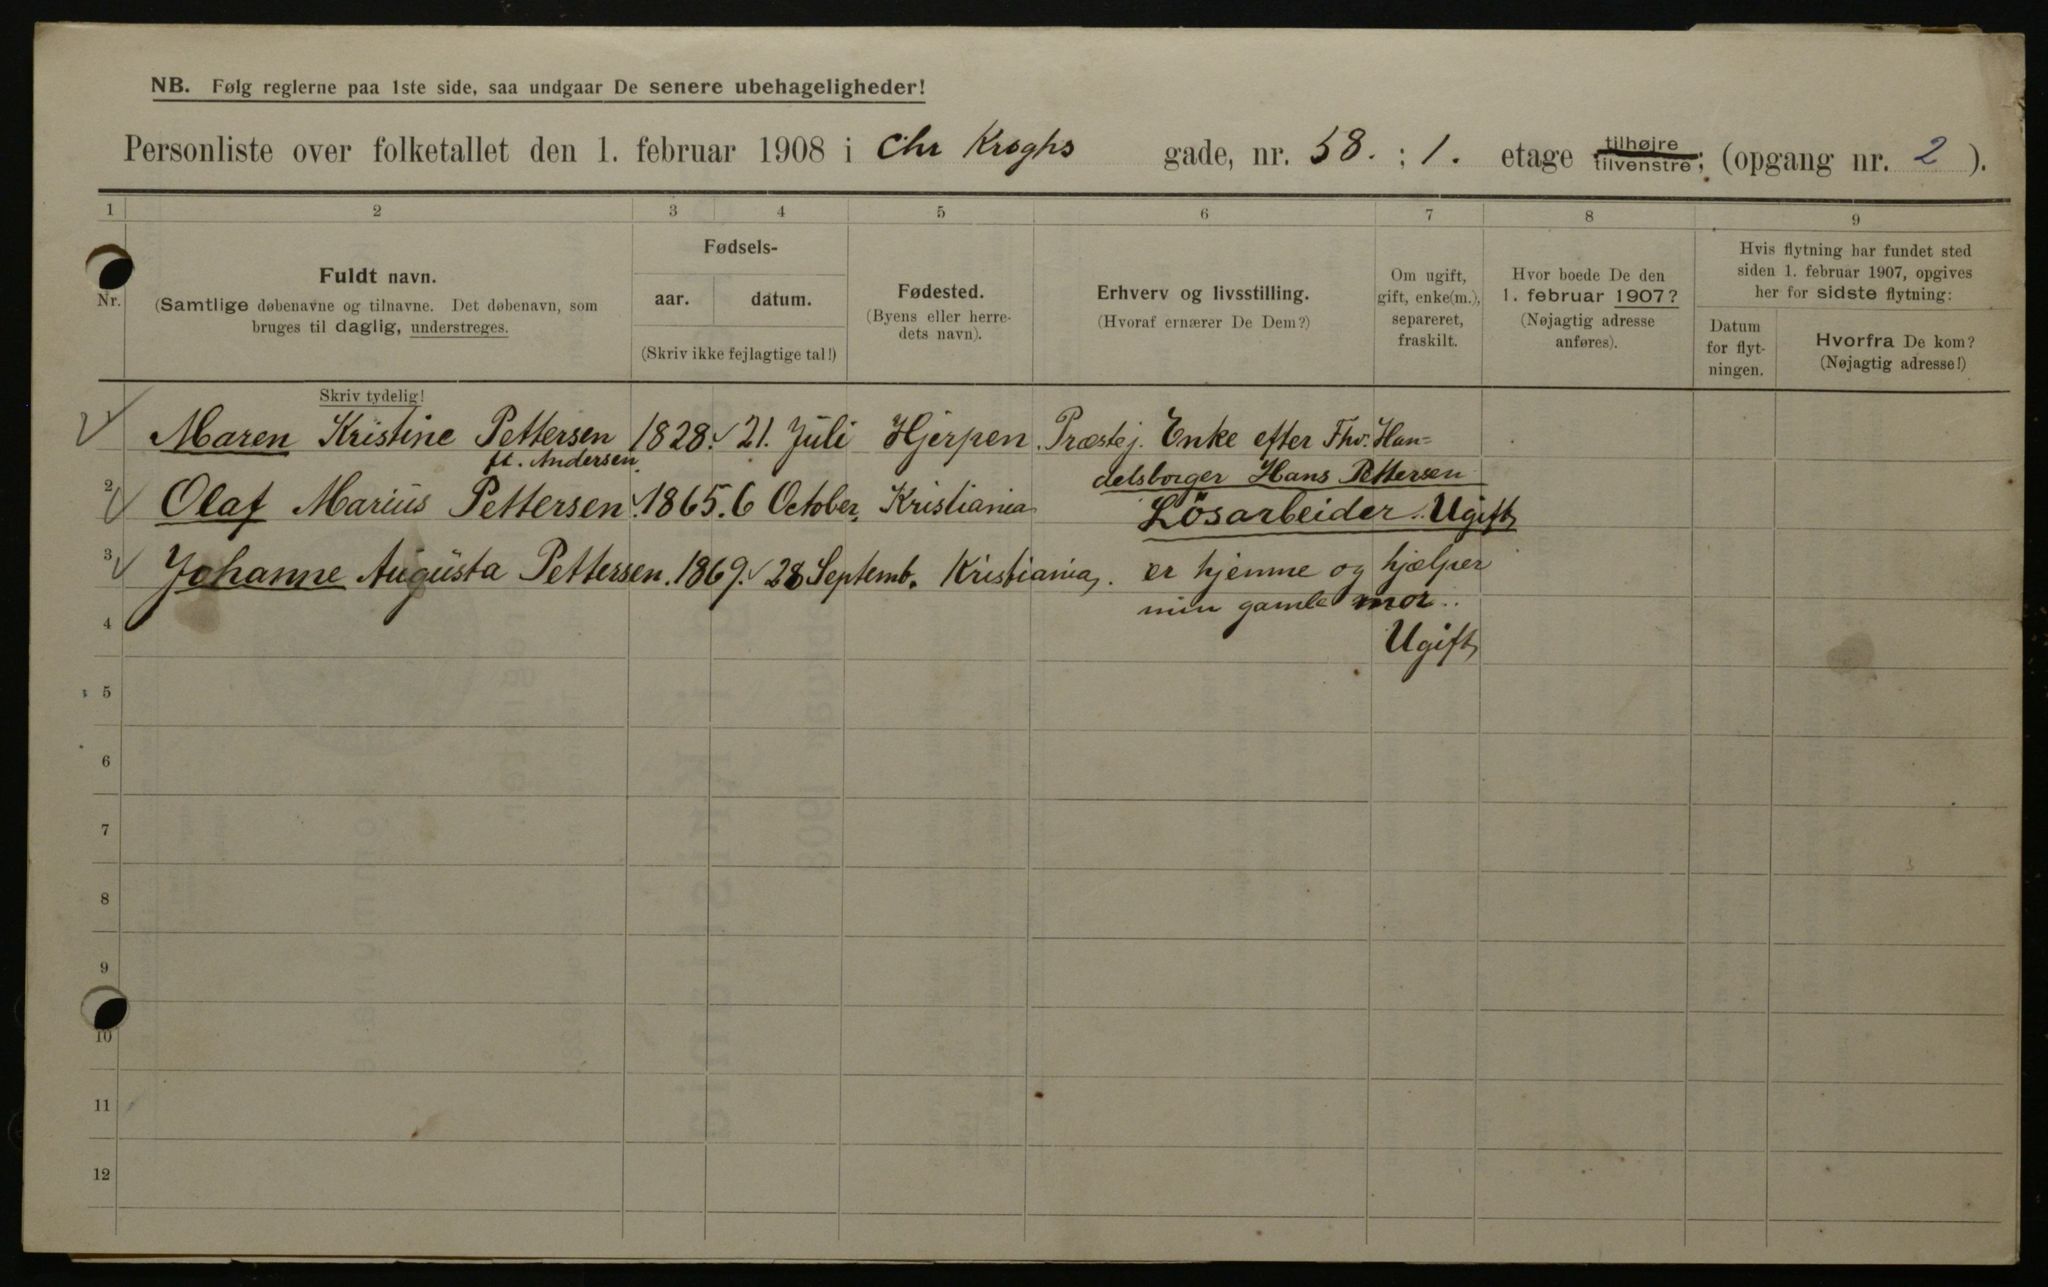 NB. Følg reglerne paa 1ste side, saa undgaar De senere ubehageligheder!
Personliste over folketallet den 1. februar 1908 i Chr Kroghs gade, nr. 58. ; 1. etage tilhøjre tilvenstre; (opgang nr. 2 ).
1 2 3 4 5 6 7 8 9
Nr.
Fuldt navn.
(Samtlige døbenavne og tilnavne. Det døbenavn, som
bruges til daglig, understreges.
Skriv tydelig!
Fødsels-
aar. datum.
(Skriv ikke fejlagtige tal!)
Fødested.
(Byens eller herre-
dets navn).
Erhverv og livsstilling.
(Hvoraf ernærer De Dem?)
Om ugift,
gift, enke(m.),
separeret,
fraskilt.
Hvor boede De den
1. februar 1907?
(Nøjagtig adresse
anføres).
Hvis flytning har fundet sted
siden 1. februar 1907, opgives
her for sidste flytning:
Datum
for flyt-
ningen.
Hvorfra De kom?
(Nøjagtig adresse!)
Maren Kristine Pettersen 1828. 21. Juli Hjerpen Præstej. Enke efter Fhv. Han=
ft. Andersen delsborger Hans Pettersen
2 Olaf Marius Pettersen. 1865. 6 October. Kristiania Lösarbeider. Ugift
3 Johanne Augusta Pettersen. 1869. 28 Septemb. Kristiania. er hjemme og hjælper
min gamle mor..
4 Ugift
5
6
7
8
9
10
11
12